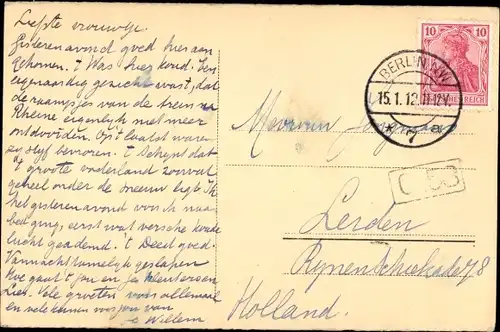 Liefste vrouwtje.
Gisterenavond goed hier aan
gekomen. 't Was hier koud. Een
eigenaardig gezicht was 't, dat
de raampjes van de trein na
Rheine eigenlijk niet meer
ontdooiden. Op 't laatst ware
zij stijf bevroren. 't Schijnt dat
't groote vaderland zoowat
geheel onder de sneeuw ligt. Ik
heb gisterenavond voor ik naar
bed ging, eerst wat versche koude
lucht geademd. 't Deed goed.
Vannacht tamelijk geslapen
Hoe gaat 't jou en je
Lies. Vele groeten voor allemaal
en vele van
je Willem
10 10
DEUTSCHES REICH
BERLIN NW
15.1.12.11-12V.
* 7 a
Mevrouw
C 53
Leiden
Rijnsburgerkade 78
Holland.